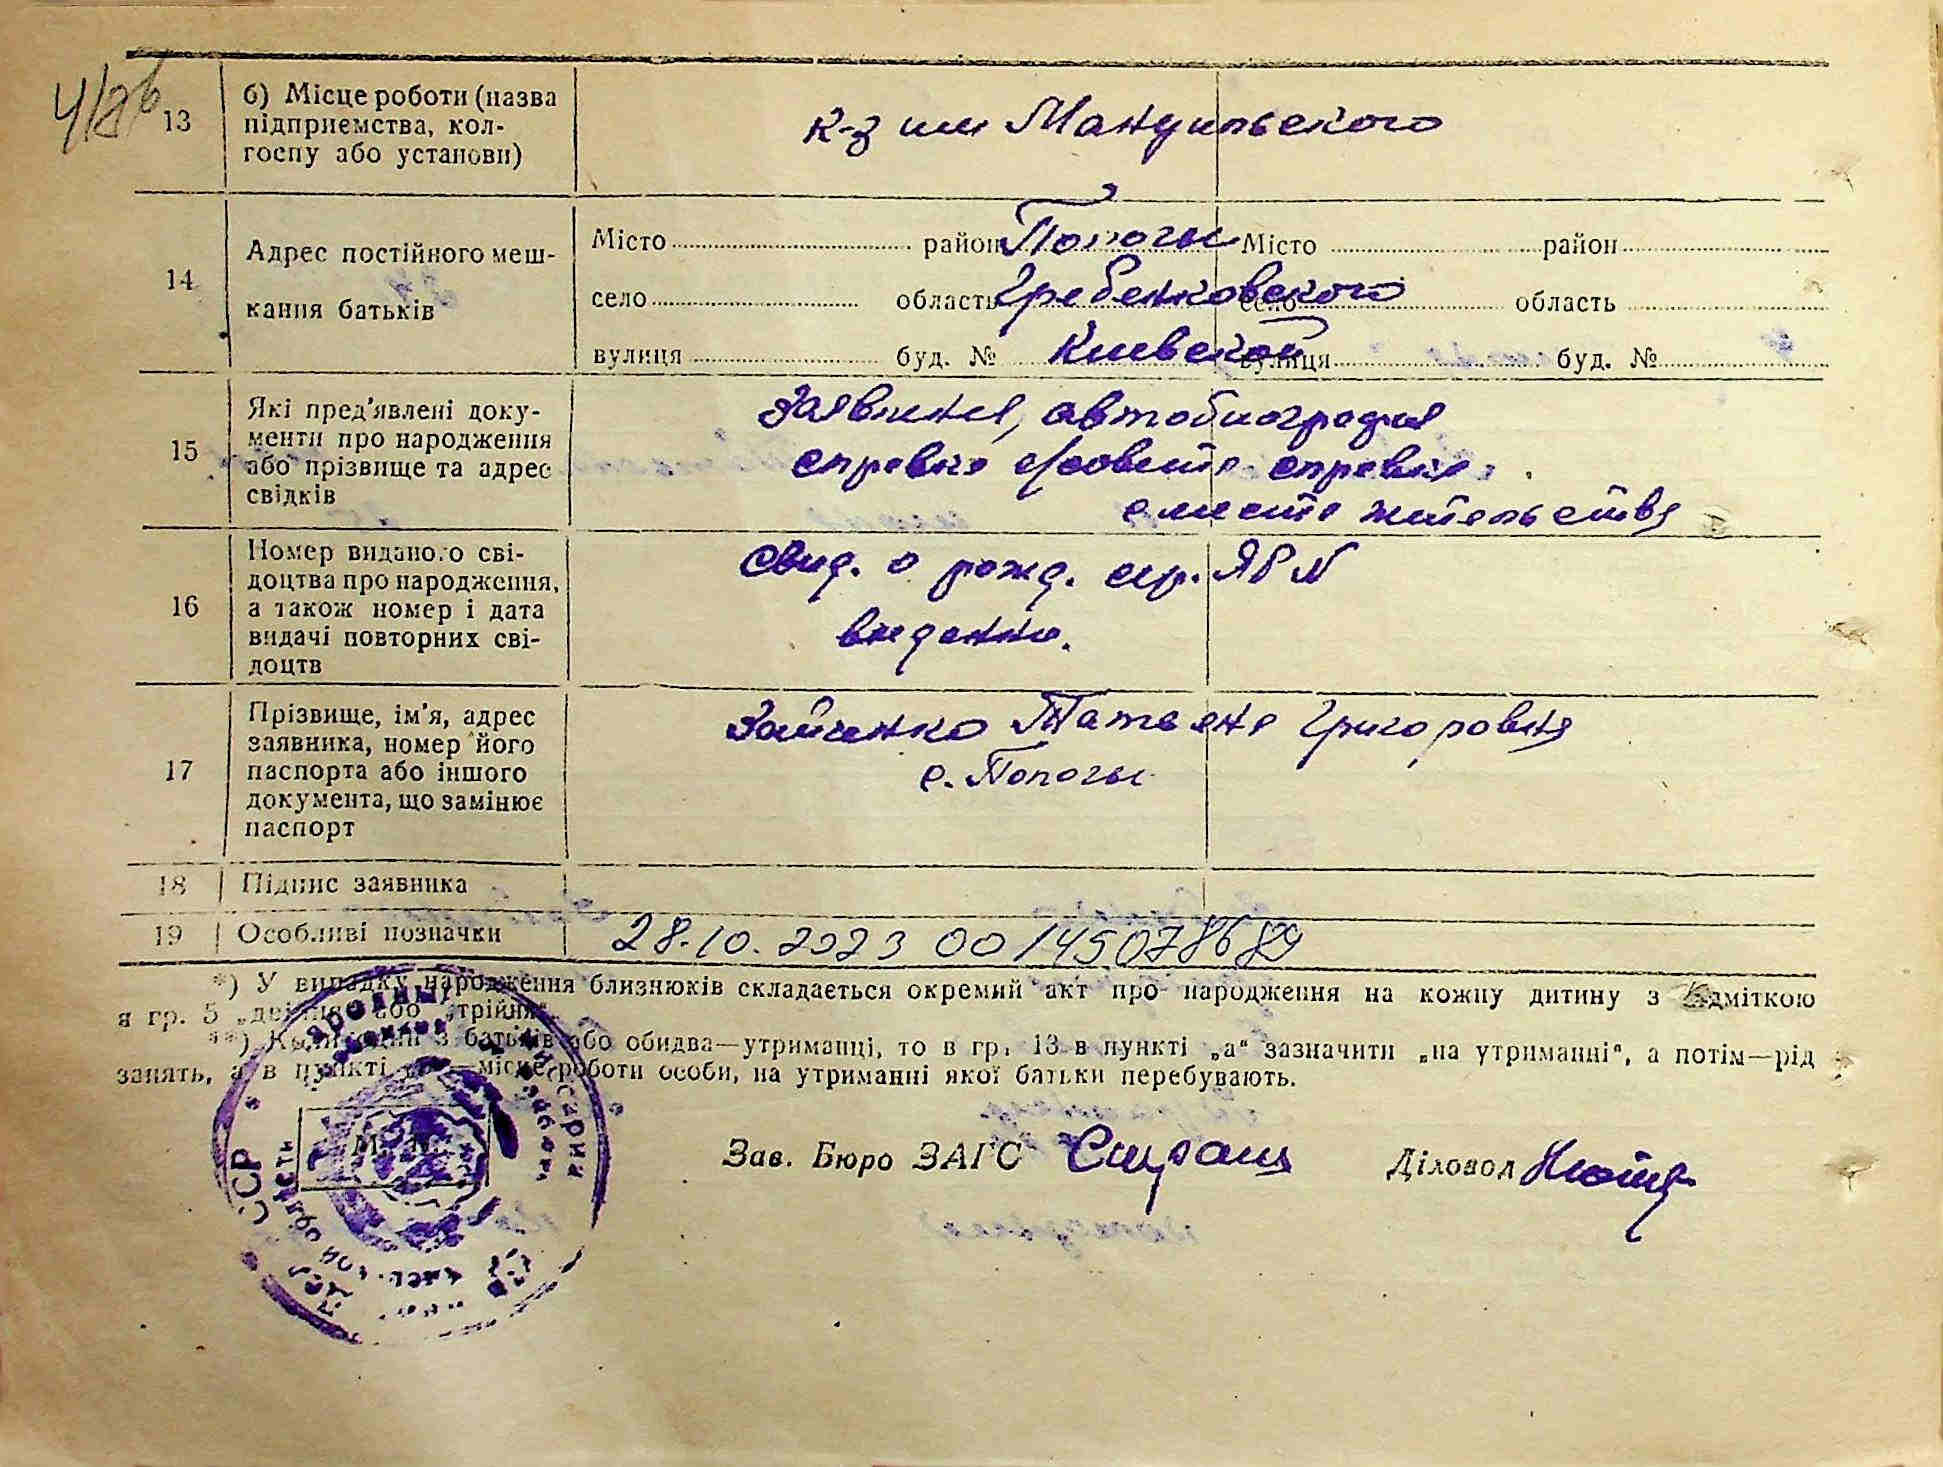 13
б) Місце роботи (назва
підприємства, кол-
госпу або установи)
к-з им Мануильского
14
Адрес постійного меш-
кання батьків
Місто район Пологы Місто район
село область Гребенковского село область
вулиця буд. № Киевской вулиця буд. №
15
Які пред'явлені доку-
менти про народження
або прізвище та адрес
свідків
Заявления, автобиография
справка с/совета справка
о месте жительства
16
Номер виданого сві-
доцтва про народження,
а також номер і дата
видачі повторних сві-
доцтв
свид. о рожд. сер. ЯР N
выданно.
17
Прізвище, ім'я, адрес
заявника, номер його
паспорта або іншого
документа, що замінює
паспорт
Зайченко Татьяна Григоровна
с. Пологы
18 Підпис заявника
19 Особливі позначки 28.10.2023 00145078689
*) У випадку народження близнюків складається окремий акт про народження на кожну дитину з відміткою
в гр. 5 „двійня" або „трійня".
**) Коли один з батьків або обидва—утриманці, то в гр. 13 в пункті „а" зазначити „на утриманні", а потім—рід
занять, а в пункті місце роботи особи, на утриманні якої батьки перебувають.
Зав. Бюро ЗАГС Діловод
М. П.